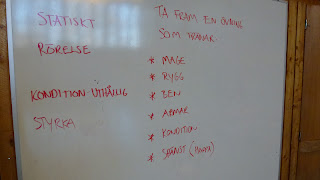 STATISKT
RÖRELSE
KONDITION-UTHÅLLIG
STYRKA
TA FRAM EN ÖVNING
SOM TRÄNAR
* MAGE
* RYGG
* BEN
* ARMAR
* KONDITION
*